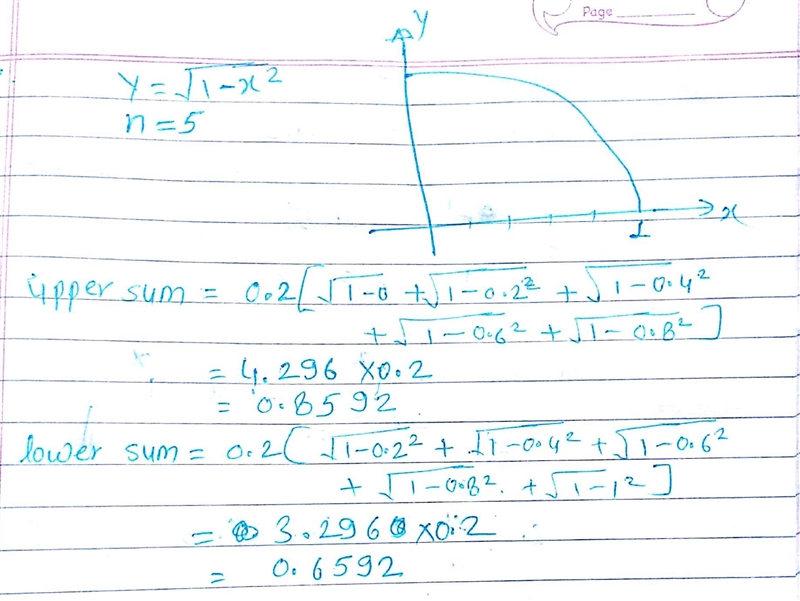 Page
Y
y = √1-x²
n = 5
x
1
upper sum = 0.2[√1-0 + √1-0.2² + √1-0.4²
+ √1-0.6² + √1-0.8²]
= 4.296 × 0.2
= 0.8592
lower sum = 0.2(√1-0.2² + √1-0.4² + √1-0.6²
+ √1-0.8² + √1-1²]
= 3.296 × 0.2
= 0.6592